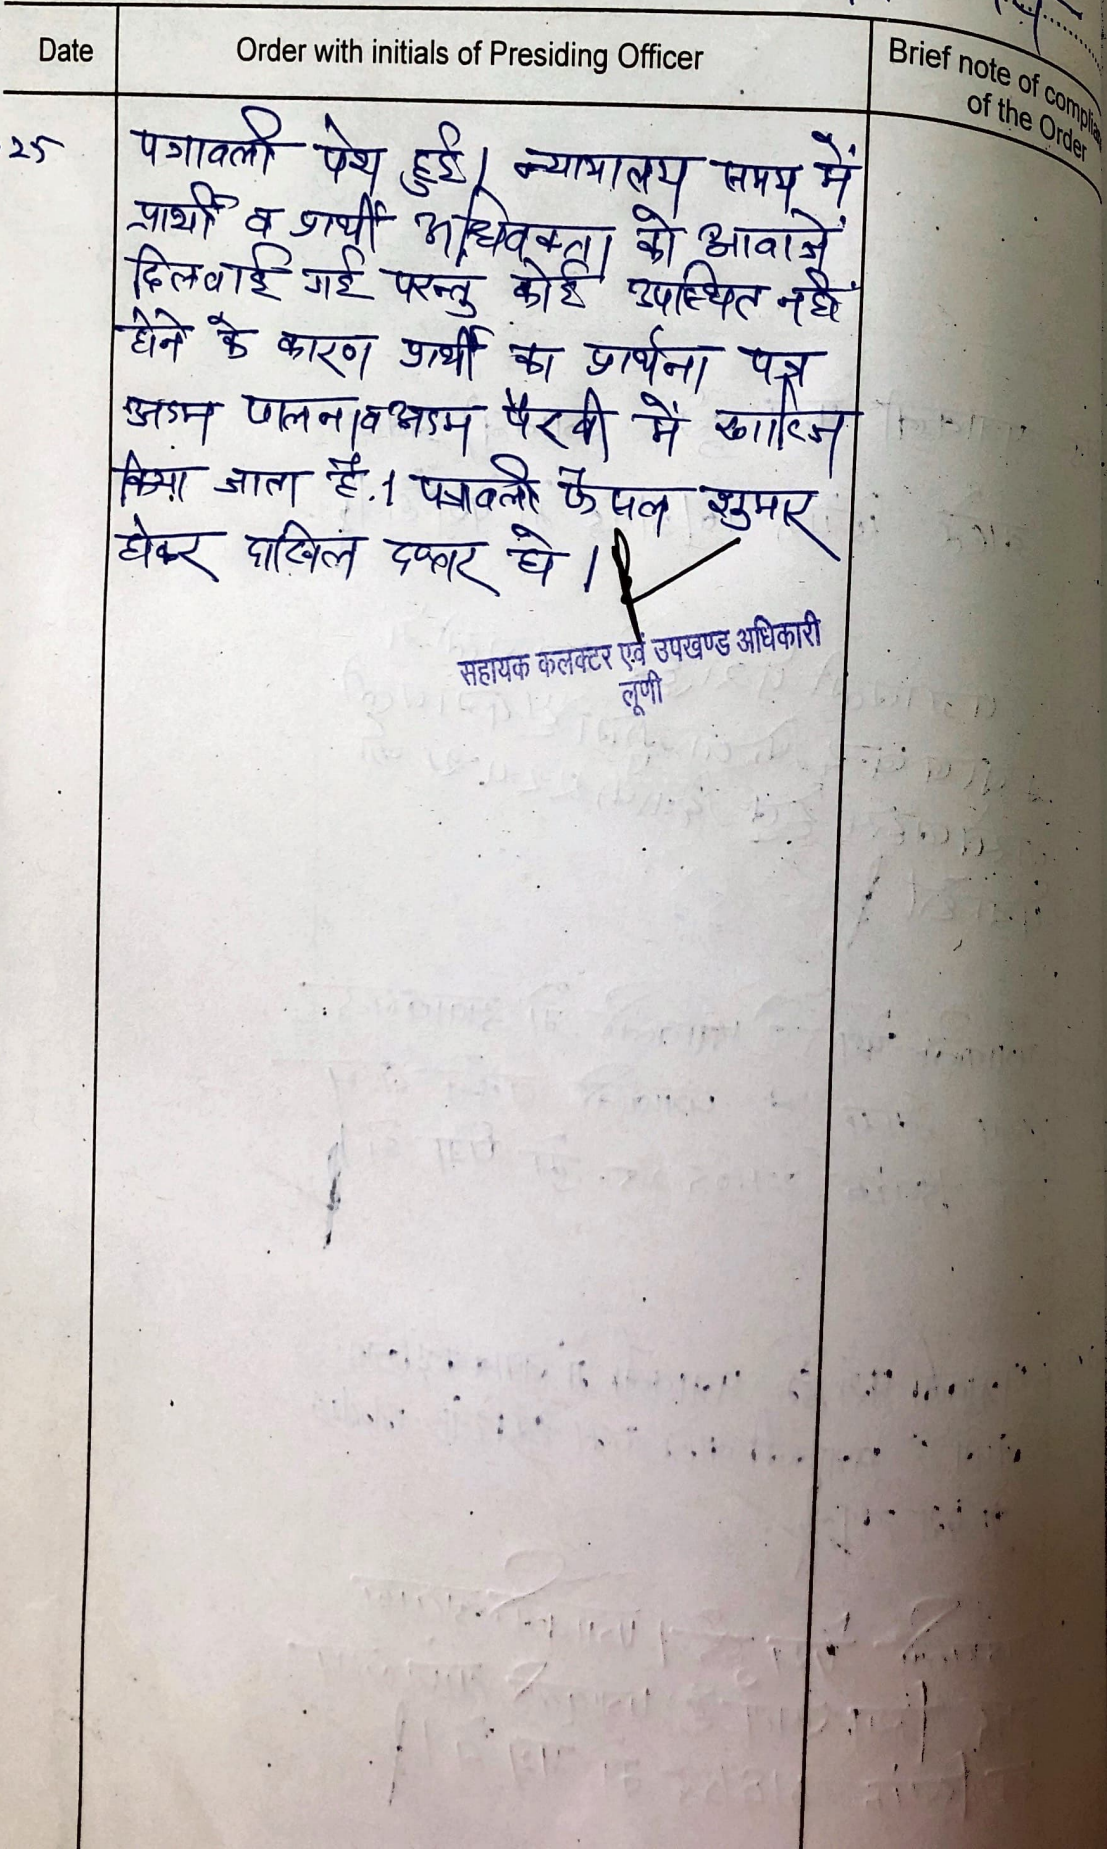 Date
Order with initials of Presiding Officer
Brief note of complia
of the Order
25
पत्रावली पेश हुई। न्यायालय समय में
प्रार्थी व प्रार्थी अधिवक्ता को आवाजें
दिलवाई गई परन्तु कोई उपस्थित नहीं
होने के कारण प्रार्थी का प्रार्थना पत्र
अदम पालना व अदम पैरवी में खारिज
किया जाता है। पत्रावली फैसल शुमार
होकर दाखिल दफ्तर हो।
सहायक कलक्टर एवं उपखण्ड अधिकारी
लूणी